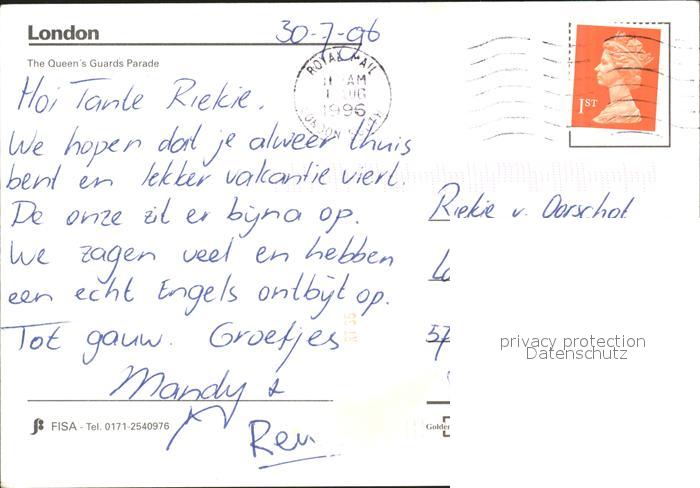 London
30-7-96
The Queen's Guards Parade
ROYAL MAIL
AM
1996
LONDON
1ST
Hoi Tante Riekie.
We hopen dat je alweer thuis
bent en lekker vakantie viert.
De onze zit er bijna op.
We zagen veel en hebben
een echt Engels ontbijt op.
Tot gauw. Groetjes
Mandy &
Riekie v. Oorschot
57
privacy protection
Datenschutz
FISA - Tel. 0171-2540976